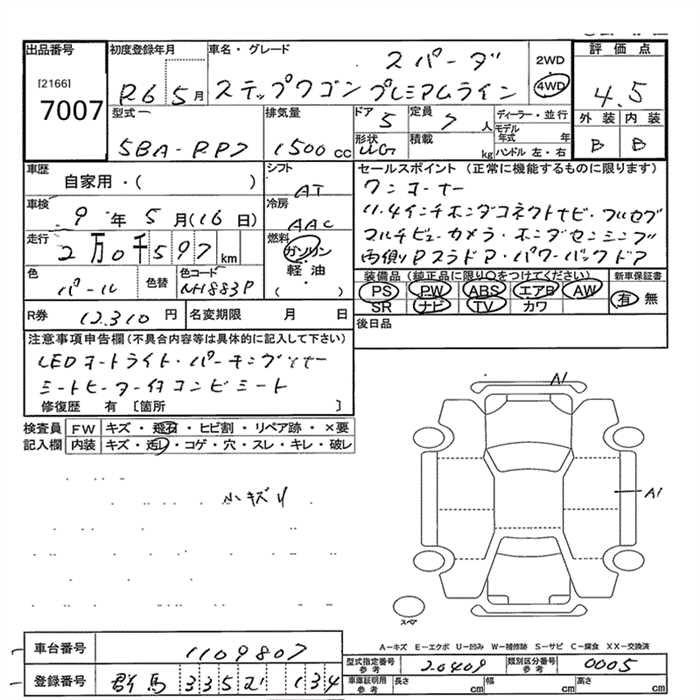 出品番号 初度登録年月 車名・グレード スパーダ 2WD 評価点
[2166] 7007 R6 5月 ステップワゴン プレミアムライン 4WD 4.5
型式 5BA-RP7 排気量 1500cc ドア 5 定員 7人 ディーラー・並行 外装 内装
形状 WG 積載 kg モデル年式 年 ハンドル 左・右 B B
車歴 自家用・( ) シフト AT セールスポイント (正常に機能するものに限ります)
ワンオーナー
車検 9年5月(16日) 冷房 AAC 11.4インチホンダコネクトナビ・フルセグ
走行 2万0千597km 燃料 ガソリン マルチビューカメラ・ホンダセンシング
軽油 ( ) 両側Pスラドア・パワーバックドア
色 パール 色替 色コード NH883P 装備品 (純正品に限り○をつけてください) 新車保証書
PS PW ABS エアB AW 有 無
SR ナビ TV カワ
R券 12,310円 名変期限 月 日 後日品
注意事項申告欄 (不具合内容等は具体的に記入して下さい)
LEDオートライト・パーキングソナー
シートヒーター付コンビシート
修復歴 有 [箇所 ]
検査員 FW キズ・飛石・ヒビ割・リペア跡・×要
記入欄 内装 キズ・汚レ・コゲ・穴・スレ・キレ・破レ
A1
小キズリ
A1
スペア
A-キズ E-エクボ U-凹み W-補修跡 S-サビ C-腐食 XX-交換済
車台番号 1109807 型式指定番号 参考 20409 類別区分番号 参考 0005
登録番号 群馬 335 134 車庫証明用 参考 長さ cm 幅 cm 高さ cm